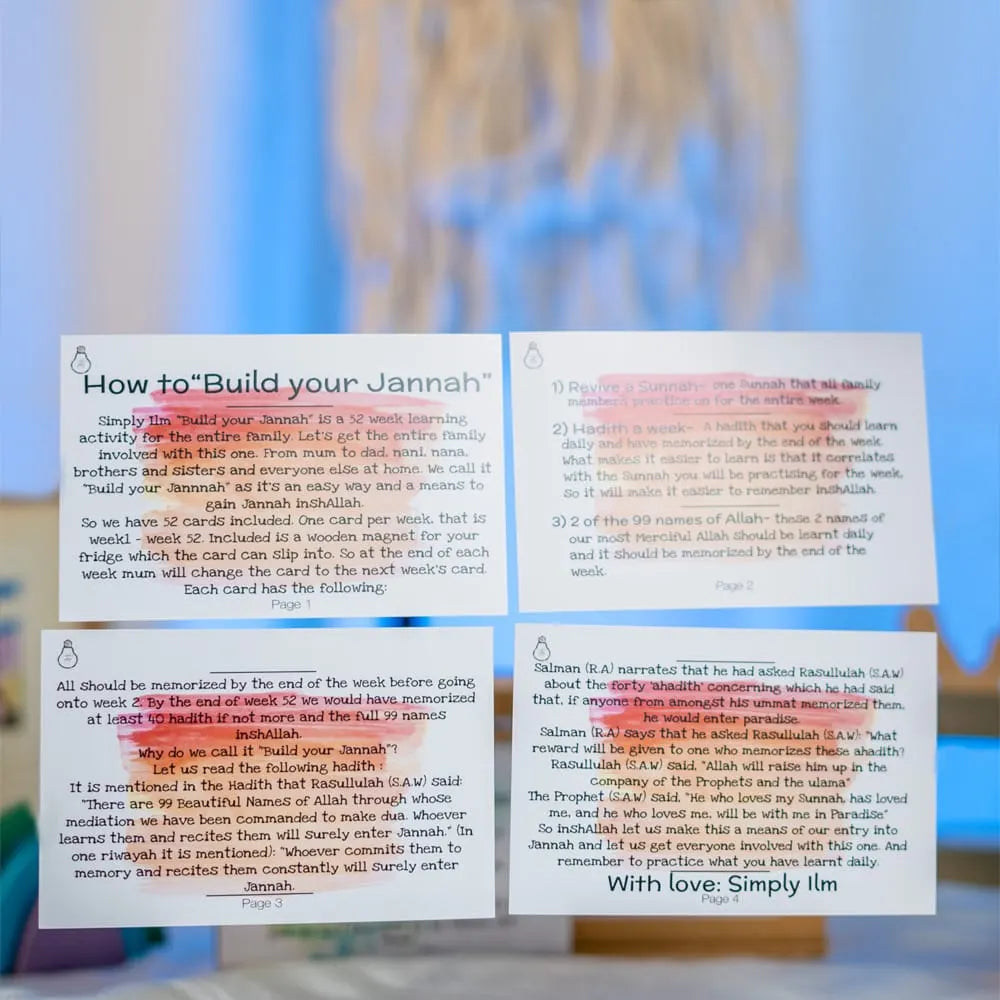 How to"Build your Jannah"
Simply Ilm "Build your Jannah" is a 52 week learning
activity for the entire family. Let's get the entire family
involved with this one. From mum to dad, nani, nana,
brothers and sisters and everyone else at home. We call it
"Build your Jannnah" as it's an easy way and a means to
gain Jannah inshAllah.
So we have 52 cards included. One card per week, that is
week1 - week 52. Included is a wooden magnet for your
fridge which the card can slip into. So at the end of each
week mum will change the card to the next week's card.
Each card has the following:
Page 1
1) Revive a Sunnah- one Sunnah that all family
members practise on for the entire week.
2) Hadith a week- A hadith that you should learn
daily and have memorized by the end of the week.
What makes it easier to learn is that it correlates
with the Sunnah you will be practising for the week,
so it will make it easier to remember inshAllah.
3) 2 of the 99 names of Allah- these 2 names of
our most Merciful Allah should be learnt daily
and it should be memorized by the end of the
week.
Page 2
All should be memorized by the end of the week before going
onto week 2. By the end of week 52 we would have memorized
at least 40 hadith if not more and the full 99 names
inshAllah.
Why do we call it "Build your Jannah"?
Let us read the following hadith :
It is mentioned in the Hadith that Rasullulah (S.A.W) said:
"There are 99 Beautiful Names of Allah through whose
mediation we have been commanded to make dua. Whoever
learns them and recites them will surely enter Jannah." (In
one riwayah it is mentioned): "Whoever commits them to
memory and recites them constantly will surely enter
Jannah.
Page 3
Salman (R.A) narrates that he had asked Rasullulah (S.A.W)
about the forty 'ahadith' concerning which he had said
that, if anyone from amongst his ummat memorized them,
he would enter paradise.
Salman (R.A) says that he asked Rasullulah (S.A.W): "What
reward will be given to one who memorizes these ahadith?
Rasullulah (S.A.W) said, "Allah will raise him up in the
company of the Prophets and the ulama"
The Prophet (S.A.W) said, "He who loves my Sunnah, has loved
me, and he who loves me, will be with me in Paradise"
So inshAllah let us make this a means of our entry into
Jannah and let us get everyone involved with this one. And
remember to practice what you have learnt daily.
With love: Simply Ilm
Page 4